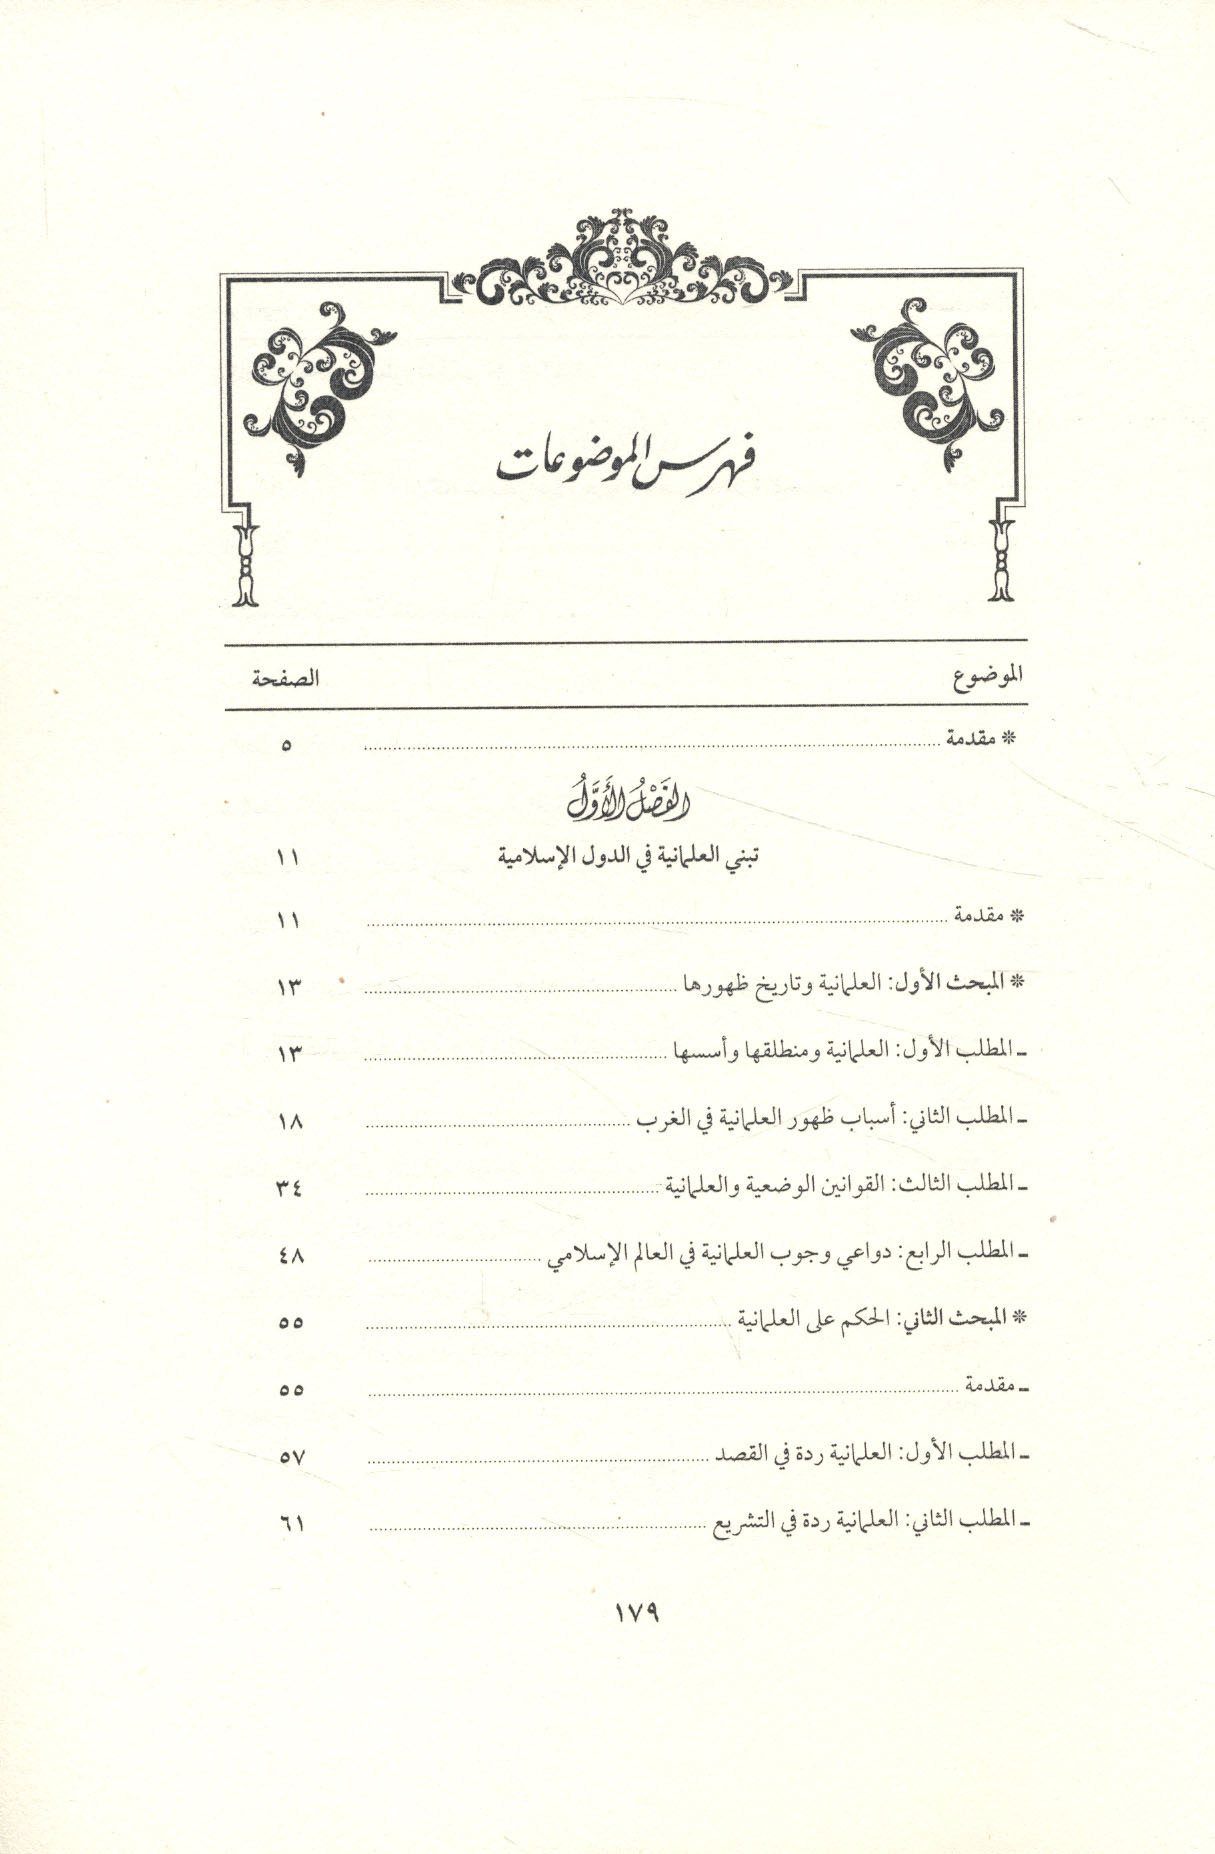 فهرس الموضوعات
الموضوع الصفحة
* مقدمة ........ ٥
الفَصْلُ الأَوَّلُ
تبني العلمانية في الدول الإسلامية ١١
* مقدمة ........ ١١
* المبحث الأول: العلمانية وتاريخ ظهورها ........ ١٣
ـ المطلب الأول: العلمانية ومنطلقها وأسسها ........ ١٣
ـ المطلب الثاني: أسباب ظهور العلمانية في الغرب ........ ١٨
ـ المطلب الثالث: القوانين الوضعية والعلمانية ........ ٣٤
ـ المطلب الرابع: دواعي وجوب العلمانية في العالم الإسلامي ........ ٤٨
* المبحث الثاني: الحكم على العلمانية ........ ٥٥
ـ مقدمة ........ ٥٥
ـ المطلب الأول: العلمانية ردة في القصد ........ ٥٧
ـ المطلب الثاني: العلمانية ردة في التشريع ........ ٦١
١٧٩